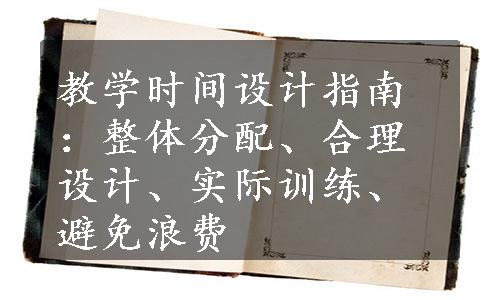 教学时间设计指南
：整体分配、合理
设计、实际训练、
避免浪费